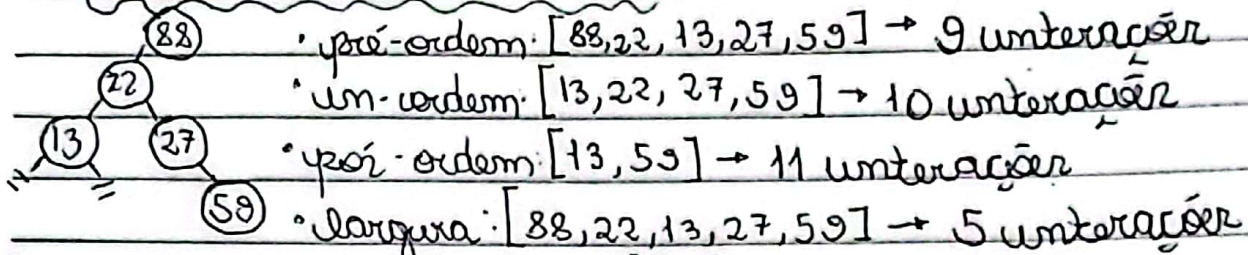 88
• pré-ordem: [88,22,13,27,59] → 9 interações
22
• in-ordem: [13,22,27,59] → 10 interações
13 27
• pós-ordem: [13,59] → 11 interações
59
• largura: [88,22,13,27,59] → 5 interações